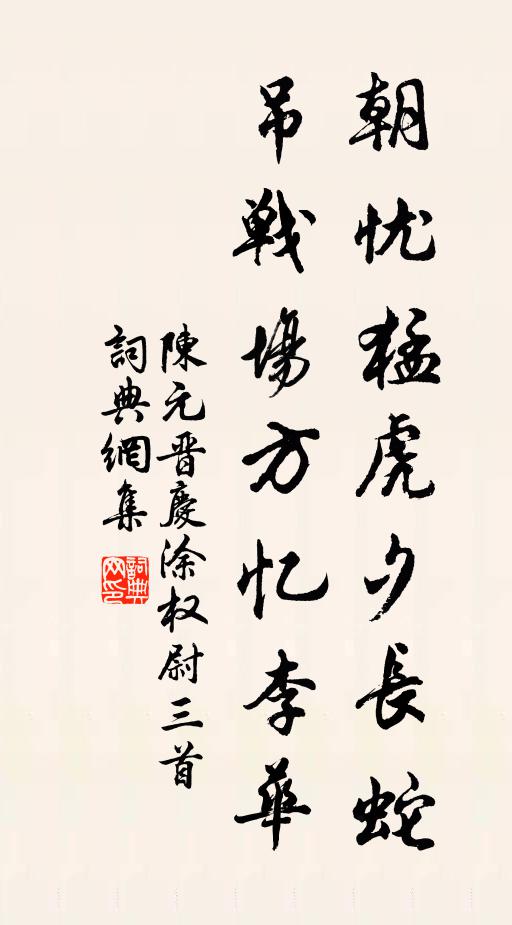 朝忧猛虎夕長蛇
吊戦場方忆李華
陳元晋慶涂权尉三首
詞典網集
詞典网印